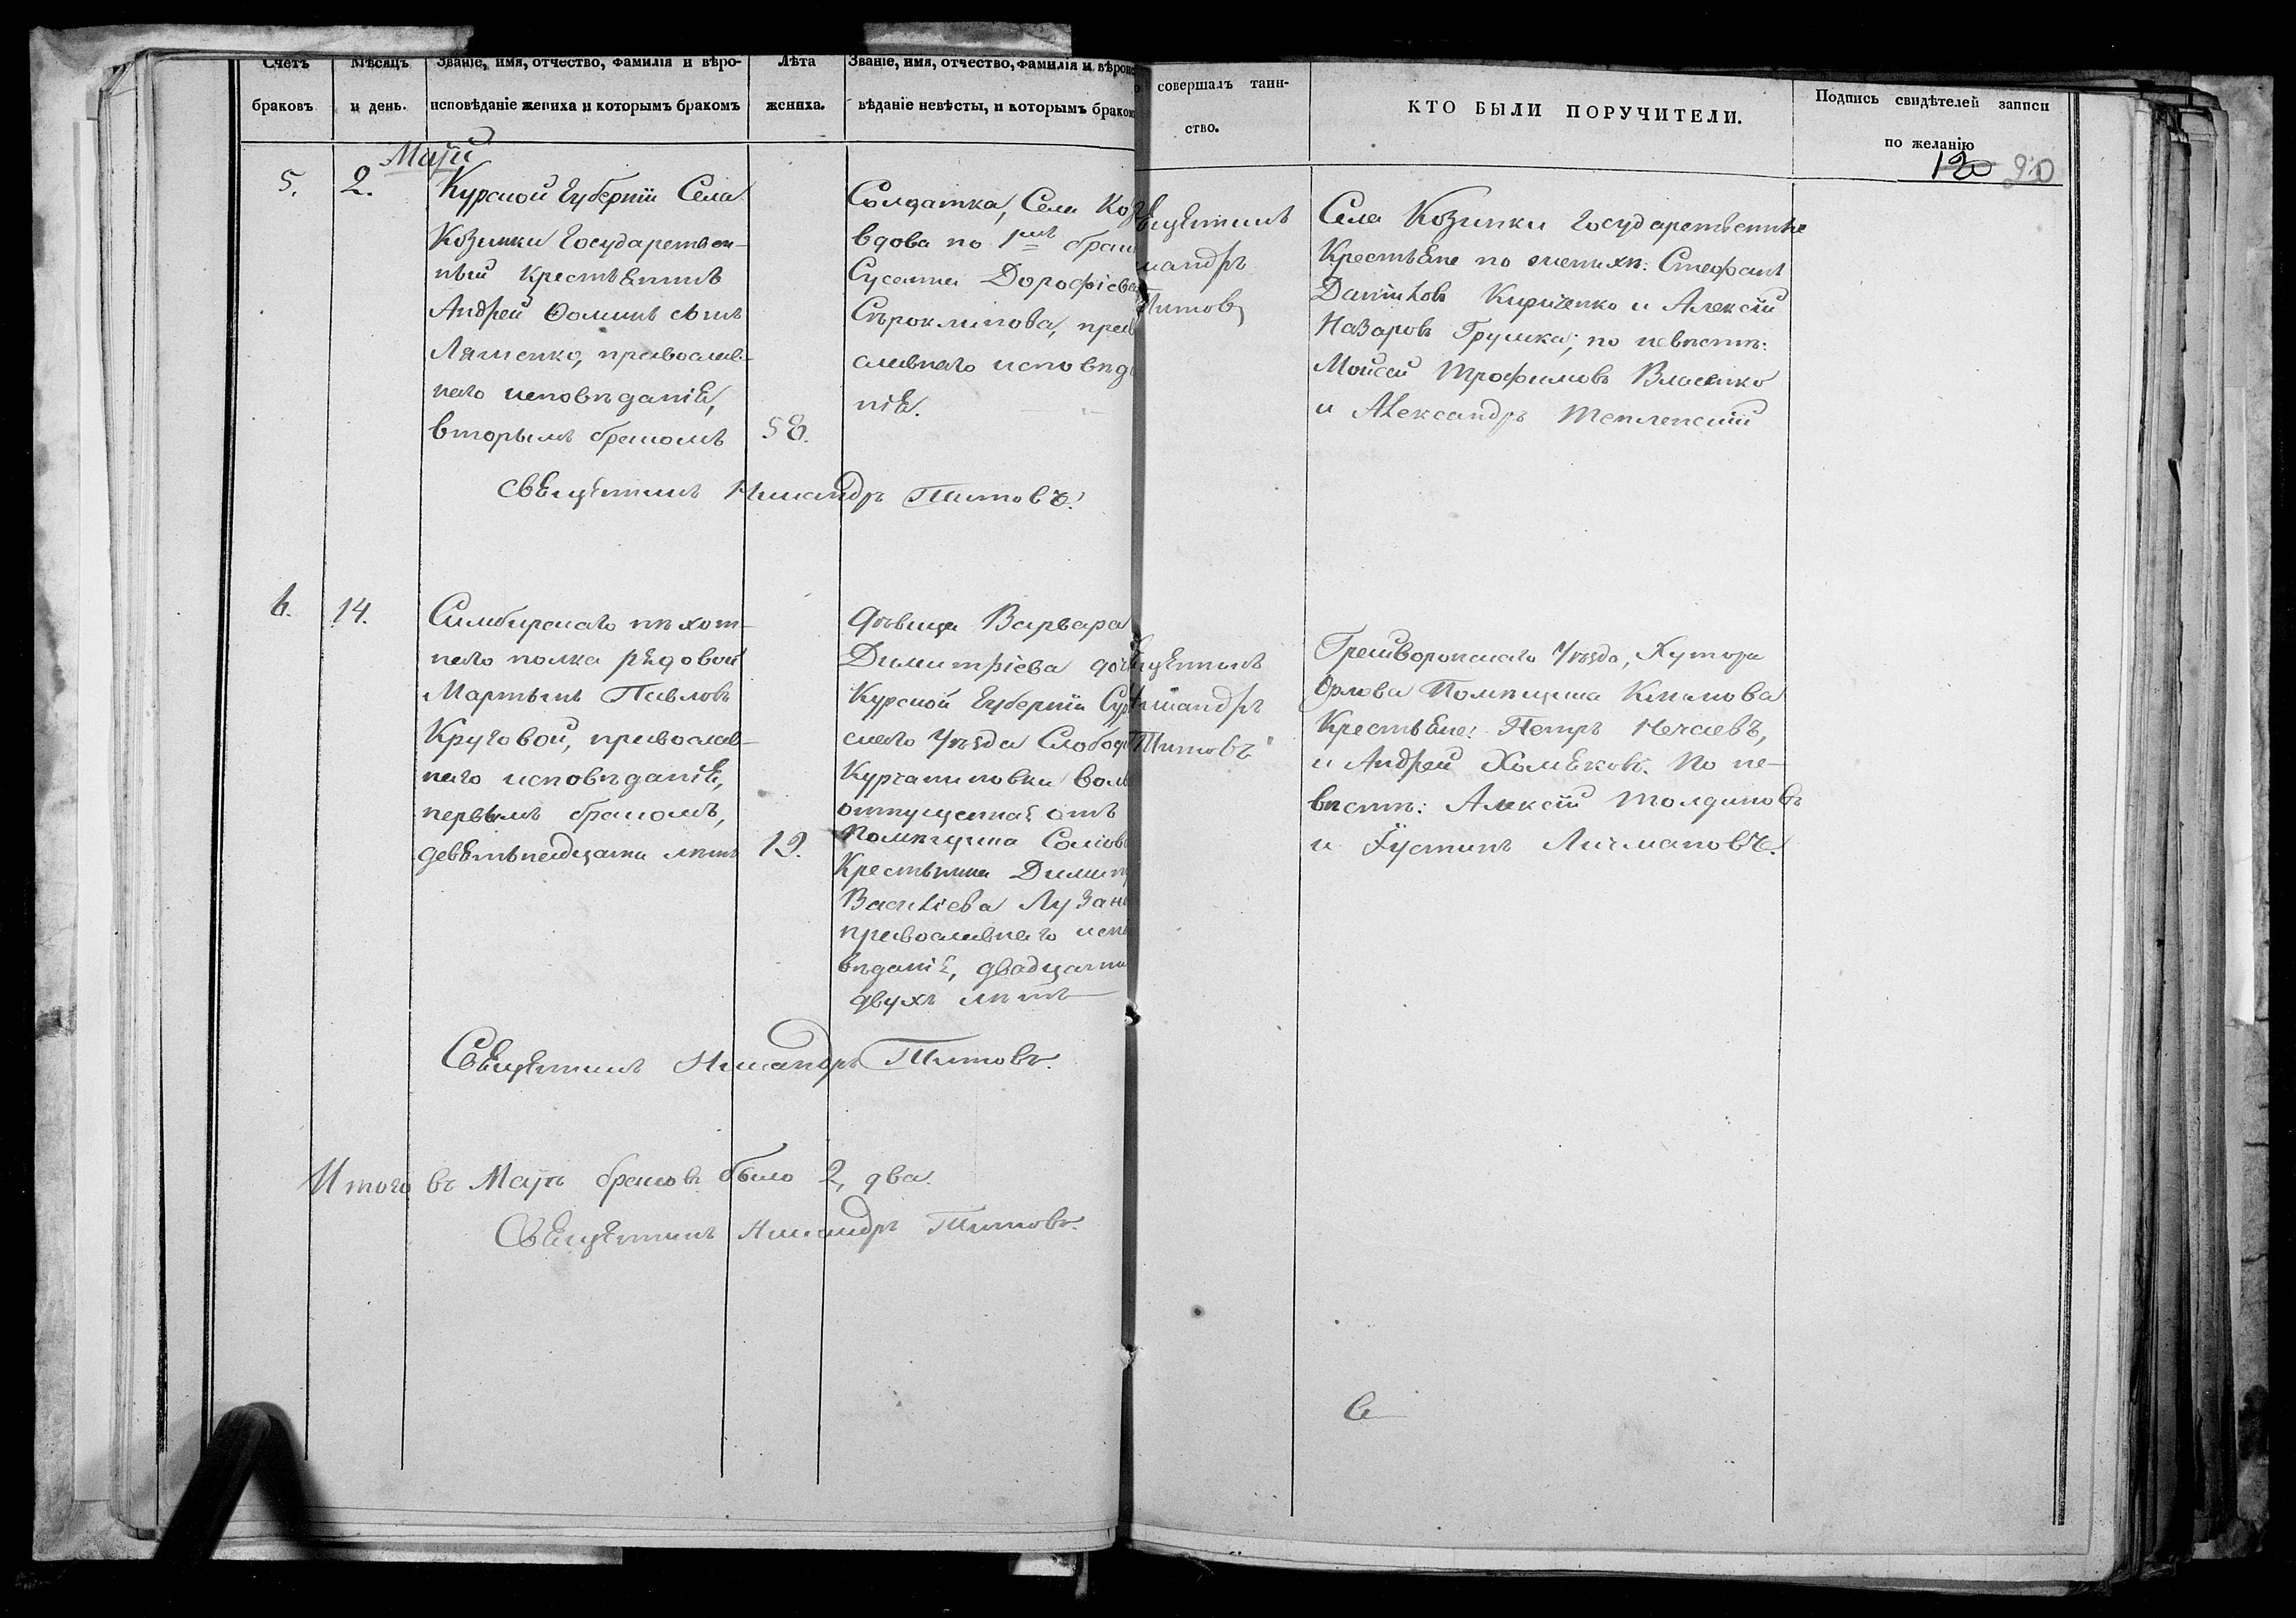 Счетъ
браковъ
Мѣсяцъ
и день.
Званіе, имя, отчество, фамилія и вѣро-
исповѣданіе жениха и которымъ бракомъ
Лѣта
жениха.
Званіе, имя, отчество, фамилія и вѣроис
вѣданіе невѣсты, и которымъ браком
совершалъ таин-
ство.
КТО БЫЛИ ПОРУЧИТЕЛИ.
Подпись свидѣтелей записи
по желанію
120 90
Маій
5.
2.
Курской Губерніи Села
Козинки Государствен-
ный Крестьянинъ
Андрей Ѳоминъ сынъ
Ляшенко, православ-
наго исповѣданія,
вторымъ бракомъ
58.
Солдатка, Села Коз
вдова по 1мъ брак
Сусанна Дорофіева
православнаго исповѣд
нія.
вященникъ
кандръ
Титовъ
Села Козинки Государственные
Крестьяне по женихѣ: Стефанъ
Даниловъ Кириченко и Алексій
Назаровъ Грушка; по невѣстѣ:
Моисей Трофимовъ Власенко
и Александръ Тепленскій
Священникъ Никандръ Титовъ.
6.
14.
Симбирскаго пѣхот-
наго полка рядовой
Мартынъ Павловъ
Круговой, православ-
наго исповѣданія,
первымъ бракомъ,
девятьнадцати лѣтъ
19.
Дѣвица Варвара
Димитріева доч
Курской Губерніи Су
скаго Уѣзда Слобод
Курчаниновки воль
отпущенная отъ
Помѣщика Солов
Крестьянина Димит
Василіева Лузан
православнаго испо
вѣданія, двадцати
двухъ лѣтъ
ященникъ
Никандръ
Титовъ
Грайворонскаго Уѣзда, Хутора
Орлова Помѣщика Климова
Крестьяне: Петръ Нечаевъ,
и Андрей Хомяковъ. По не-
вѣстѣ: Алексій Толдиновъ
и Іустинъ Личмановъ.
Священникъ Никандръ Титовъ.
Итого въ Маіѣ браковъ было 2, два.
Священникъ Никандръ Титовъ.